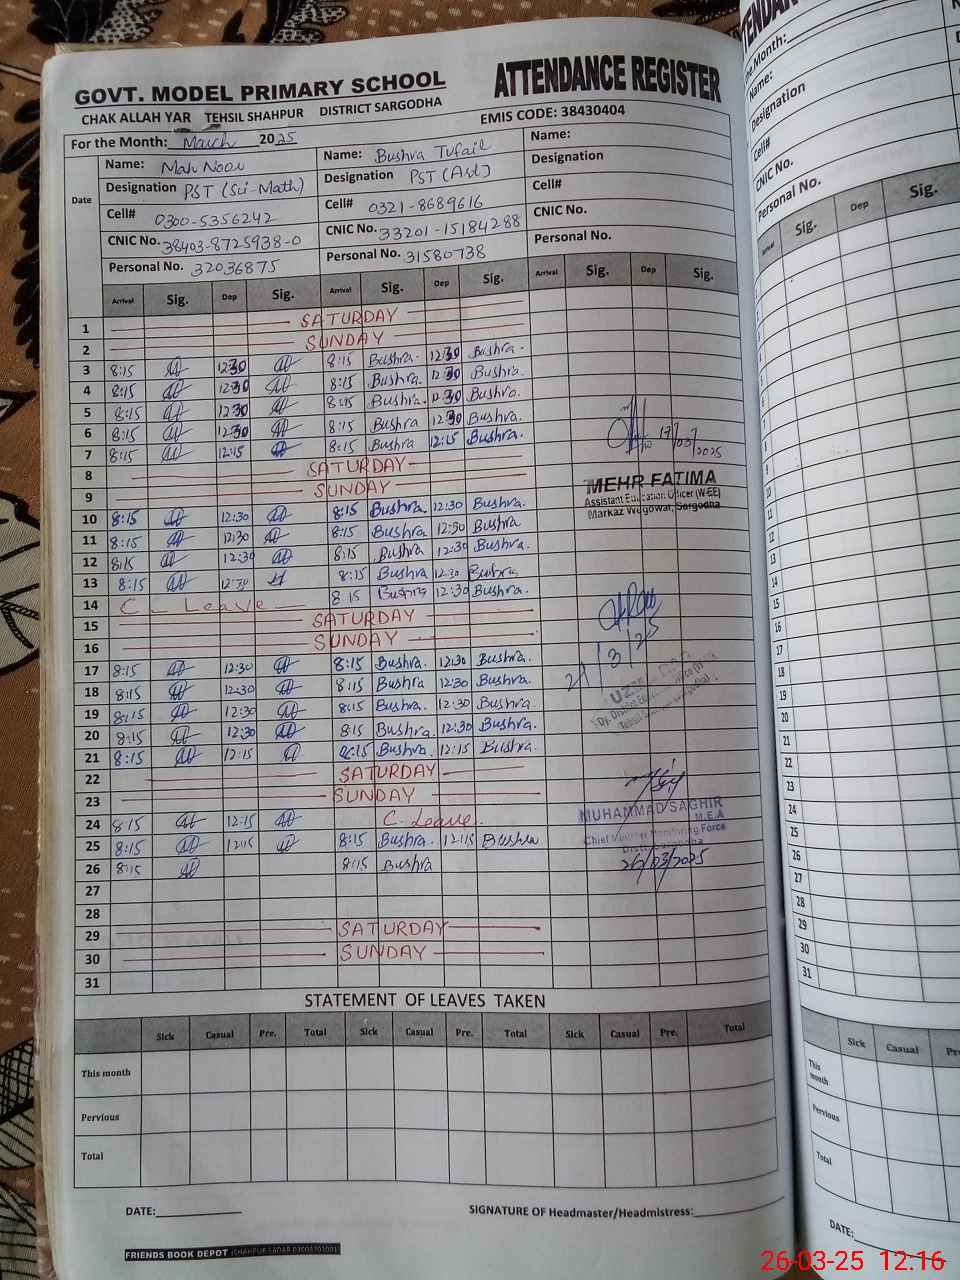 GOVT. MODEL PRIMARY SCHOOL ATTENDANCE REGISTER
CHAK ALLAH YAR TEHSIL SHAHPUR DISTRICT SARGODHA EMIS CODE: 38430404
For the Month: March 2025
Date Name: Mah Noor Name: Bushra Tufail Name:
Designation PST (Sci-Math) Designation PST (Ast) Designation
Cell# 0300-5356242 Cell# 0321-8689616 Cell#
CNIC No. 38403-8725938-0 CNIC No. 33201-15184288 CNIC No.
Personal No. 32036875 Personal No. 31580738 Personal No.
Arrival Sig. Dep Sig. Arrival Sig. Dep Sig. Arrival Sig. Dep Sig.
1 SATURDAY
2 SUNDAY
3 8:15 12:30 8:15 Bushra. 12:30 Bushra.
4 8:15 12:30 8:15 Bushra. 12:30 Bushra.
5 8:15 12:30 8:15 Bushra. 12:30 Bushra.
6 8:15 12:30 8:15 Bushra 12:30 Bushra.
7 8:15 12:15 8:15 Bushra 12:15 Bushra.
8 SATURDAY
9 SUNDAY
10 8:15 12:30 8:15 Bushra. 12:30 Bushra.
11 8:15 12:30 8:15 Bushra 12:30 Bushra
12 8:15 12:30 8:15 Bushra 12:30 Bushra.
13 8:15 12:30 8:15 Bushra 12:30 Bushra
14 C. Leave 8:15 Bushra 12:30 Bushra.
15 SATURDAY
16 SUNDAY
17 8:15 12:30 8:15 Bushra. 12:30 Bushra.
18 8:15 12:30 8:15 Bushra 12:30 Bushra.
19 8:15 12:30 8:15 Bushra. 12:30 Bushra.
20 8:15 12:30 8:15 Bushra. 12:30 Bushra.
21 8:15 12:15 8:15 Bushra. 12:15 Bushra.
22 SATURDAY
23 SUNDAY
24 8:15 12:15 C. Leave.
25 8:15 12:15 8:15 Bushra. 12:15 Bushra
26 8:15 8:15 Bushra
27
28
29 SATURDAY
30 SUNDAY
31
17/03/2025
MEHR FATIMA
Assistant Education Officer (W-EE)
Markaz Wegowal, Sargodha
21/3/25
MUHAMMAD SAGHIR
M.E.A
Chief Minister Monitoring Force
26/03/2025
STATEMENT OF LEAVES TAKEN
Sick Casual Pre. Total Sick Casual Pre. Total Sick Casual Pre. Total
This month
Pervious
Total
DATE: SIGNATURE OF Headmaster/Headmistress:
FRIENDS BOOK DEPOT
Month:
Name:
Designation
Cell#
CNIC No.
Personal No.
Sig. Dep Sig.
1
2
3
4
5
6
7
8
9
10
11
12
13
14
15
16
17
18
19
20
21
22
23
24
25
26
27
28
29
30
31
Sick Casual
This month
Pervious
Total
DATE:
26-03-25 12.16